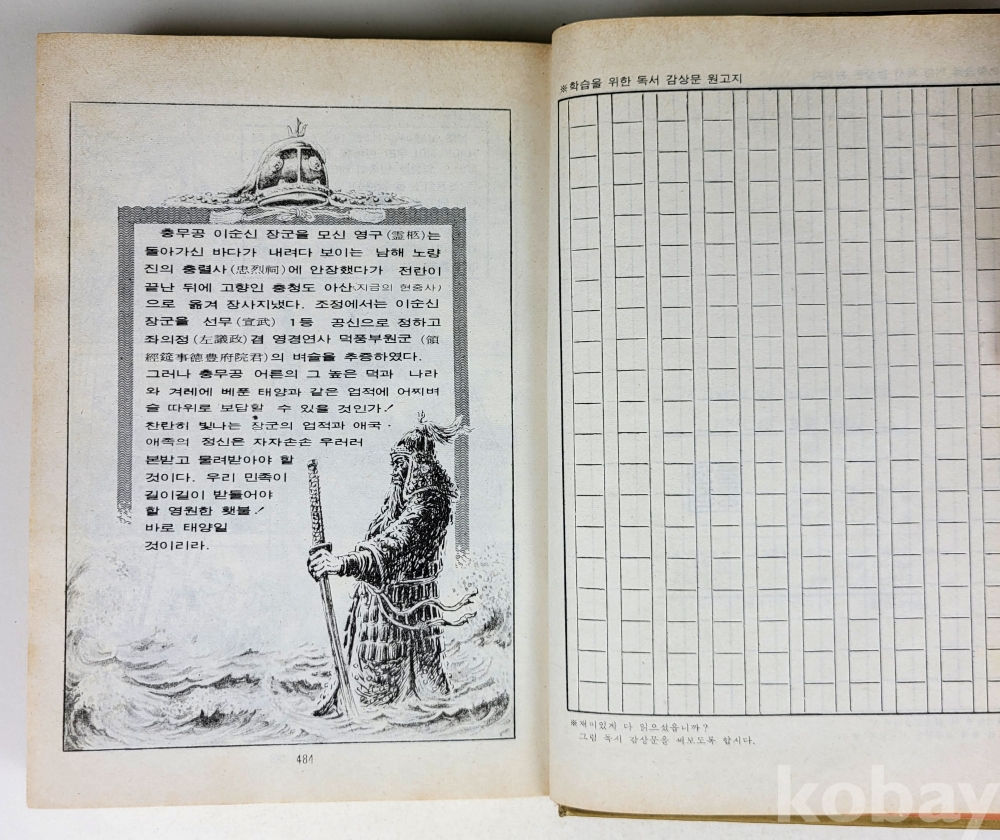 충무공 이순신 장군을 모신 영구(霊柩)는
돌아가신 바다가 내려다 보이는 남해 노량
진의 충렬사(忠烈祠)에 안장했다가 전란이
끝난 뒤에 고향인 충청도 아산(지금의 현충사)
으로 옮겨 장사지냈다. 조정에서는 이순신
장군을 선무(宣武) 1등 공신으로 정하고
좌의정(左議政)겸 영경연사 덕풍부원군 (領
經筵事德豊府院君)의 벼슬을 추증하였다.
그러나 충무공 어른의 그 높은 덕과 나라
와 겨레에 베푼 태양과 같은 업적에 어찌벼
슬 따위로 보답할 수 있을 것인가!
찬란히 빛나는 장군의 업적과 애국·
애족의 정신은 자자손손 우러러
본받고 물려받아야 할
것이다. 우리 민족이
길이길이 받들어야
할 영원한 횃불!
바로 태양일
것이리라.
484
※학습을 위한 독서 감상문 원고지
※재미있게 다 읽으셨읍니까?
그럼 독서 감상문을 써보도록 합시다.
kobay